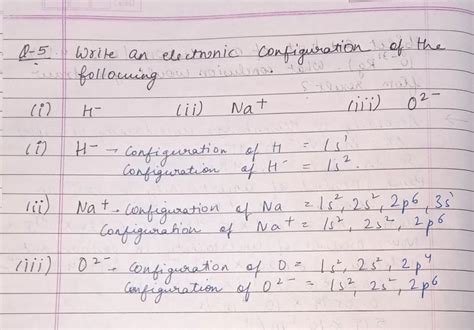 Q-5 Write an electronic configuration of the
following.
(i) H⁻ (ii) Na⁺ (iii) O²⁻
(i) H⁻ → configuration of H = 1s¹
Configuration of H⁻ = 1s².
(ii) Na⁺ → configuration of Na = 1s², 2s², 2p⁶, 3s¹
Configuration of Na⁺ = 1s², 2s², 2p⁶
(iii) O²⁻ → configuration of O = 1s², 2s², 2p⁴
Configuration of O²⁻ = 1s², 2s², 2p⁶